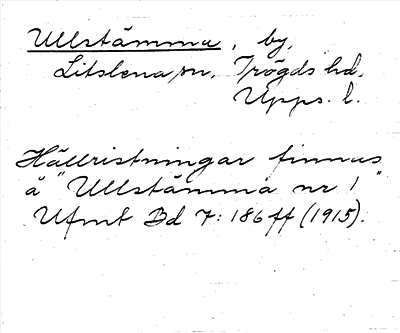 Ullstämma, by,
Litslena sn, Trögds hd.
Upps. l.
Hällristningar finnas
å "Ullstämma nr 1"
Ufmt Bd 7: 186 ff (1915).